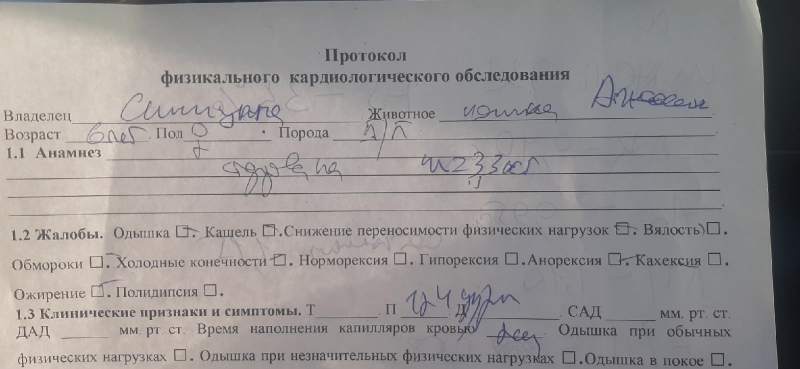 Протокол
физикального кардиологического обследования
Владелец Животное кошка
Возраст 6 лет Пол Порода д/п
1.1 Анамнез
1.2 Жалобы. Одышка ☐. Кашель ☐.Снижение переносимости физических нагрузок ☐. Вялость)☐.
Обмороки ☐. Холодные конечности ☐. Норморексия ☐. Гипорексия ☐.Анорексия ☐. Кахексия ☐.
Ожирение ☐. Полидипсия ☐.
1.3 Клинические признаки и симптомы. Т П Д САД мм. рт. ст.
ДАД мм. рт. ст. Время наполнения капилляров кровью Одышка при обычных
физических нагрузках ☐. Одышка при незначительных физических нагрузках ☐.Одышка в покое ☐.